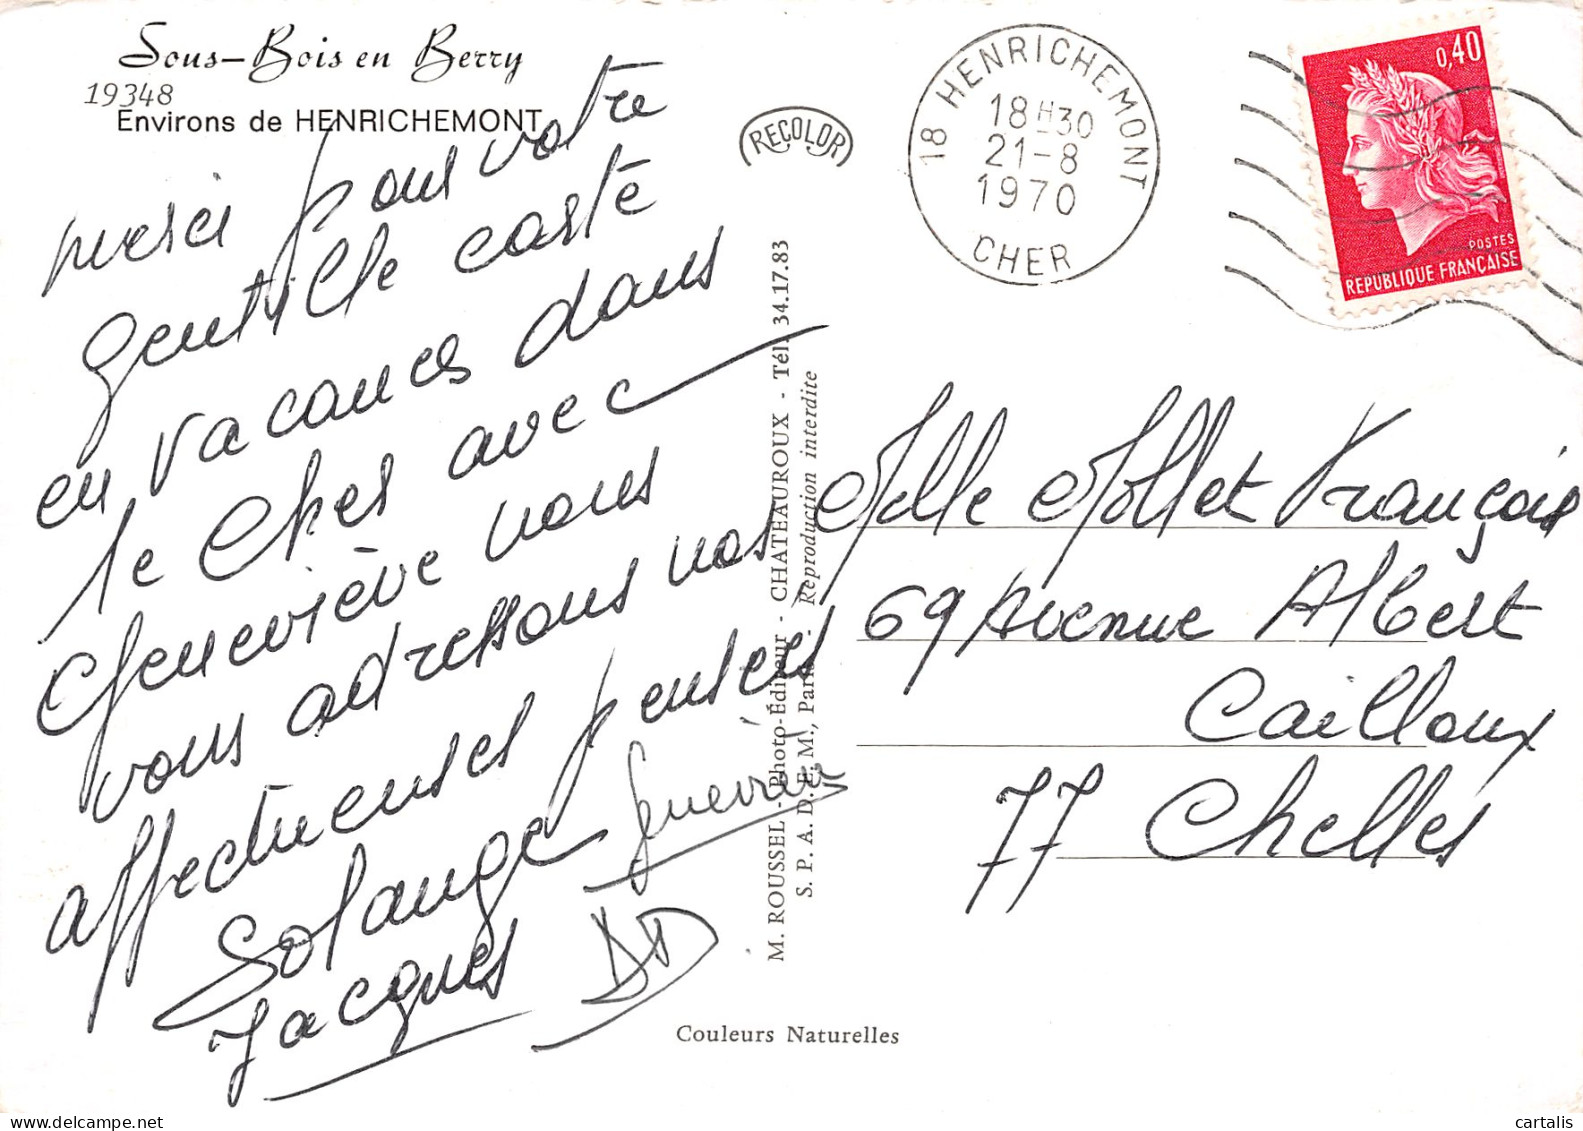 Sous-Bois en Berry
19348
Environs de HENRICHEMONT
merci pour votre
gentille carte
en vacances dans
le Cher avec
Geneviève nous
vous adressons nos
affectueuses pensées
Solange
Jacques
RECOLOR
18 HENRICHEMONT
18H30
21-8
1970
CHER
0,40
POSTES
REPUBLIQUE FRANÇAISE
M. ROUSSEL - Photo-Éditeur - CHATEAUROUX - Tél. 34.17.83
S. P. A. D. E. M., Paris. Reproduction interdite
Melle Mollet Françoise
69 Avenue Albert
Cailloux
77 Chelles
Couleurs Naturelles
cartalis